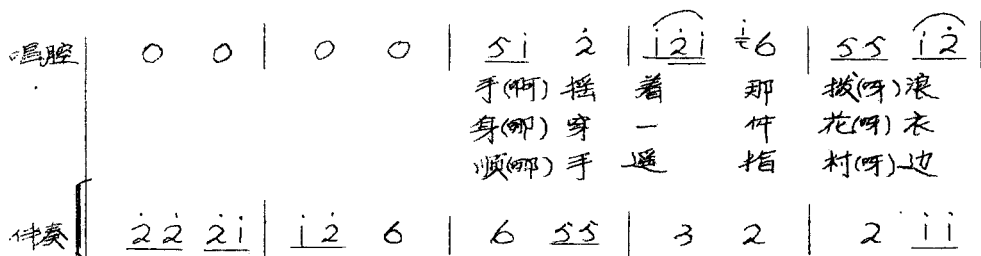 唱腔 0 0 | 0 0 | 5i 2̇ | i2̇i i6 | 55 i2̇ |
手(啊)摇 着 那 拨(呀)浪
身(哪)穿 一 件 花(呀)衣
顺(哪)手 遥 指 村(呀)边
伴奏 2̇2̇ 2̇i | i2̇ 6 | 6 55 | 3 2 | 2 ii